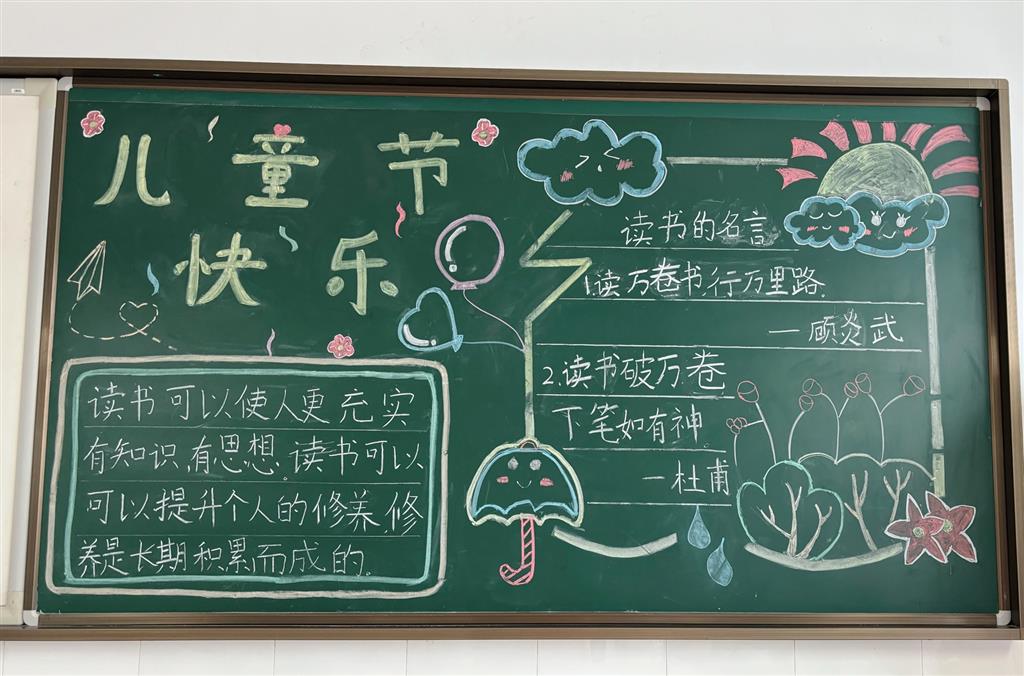 儿童节
快乐
读书可以使人更充实
有知识,有思想,读书可以
可以提升个人的修养,修
养是长期积累而成的。
读书的名言
1.读万卷书,行万里路.
—顾炎武
2.读书破万卷
下笔如有神.
—杜甫